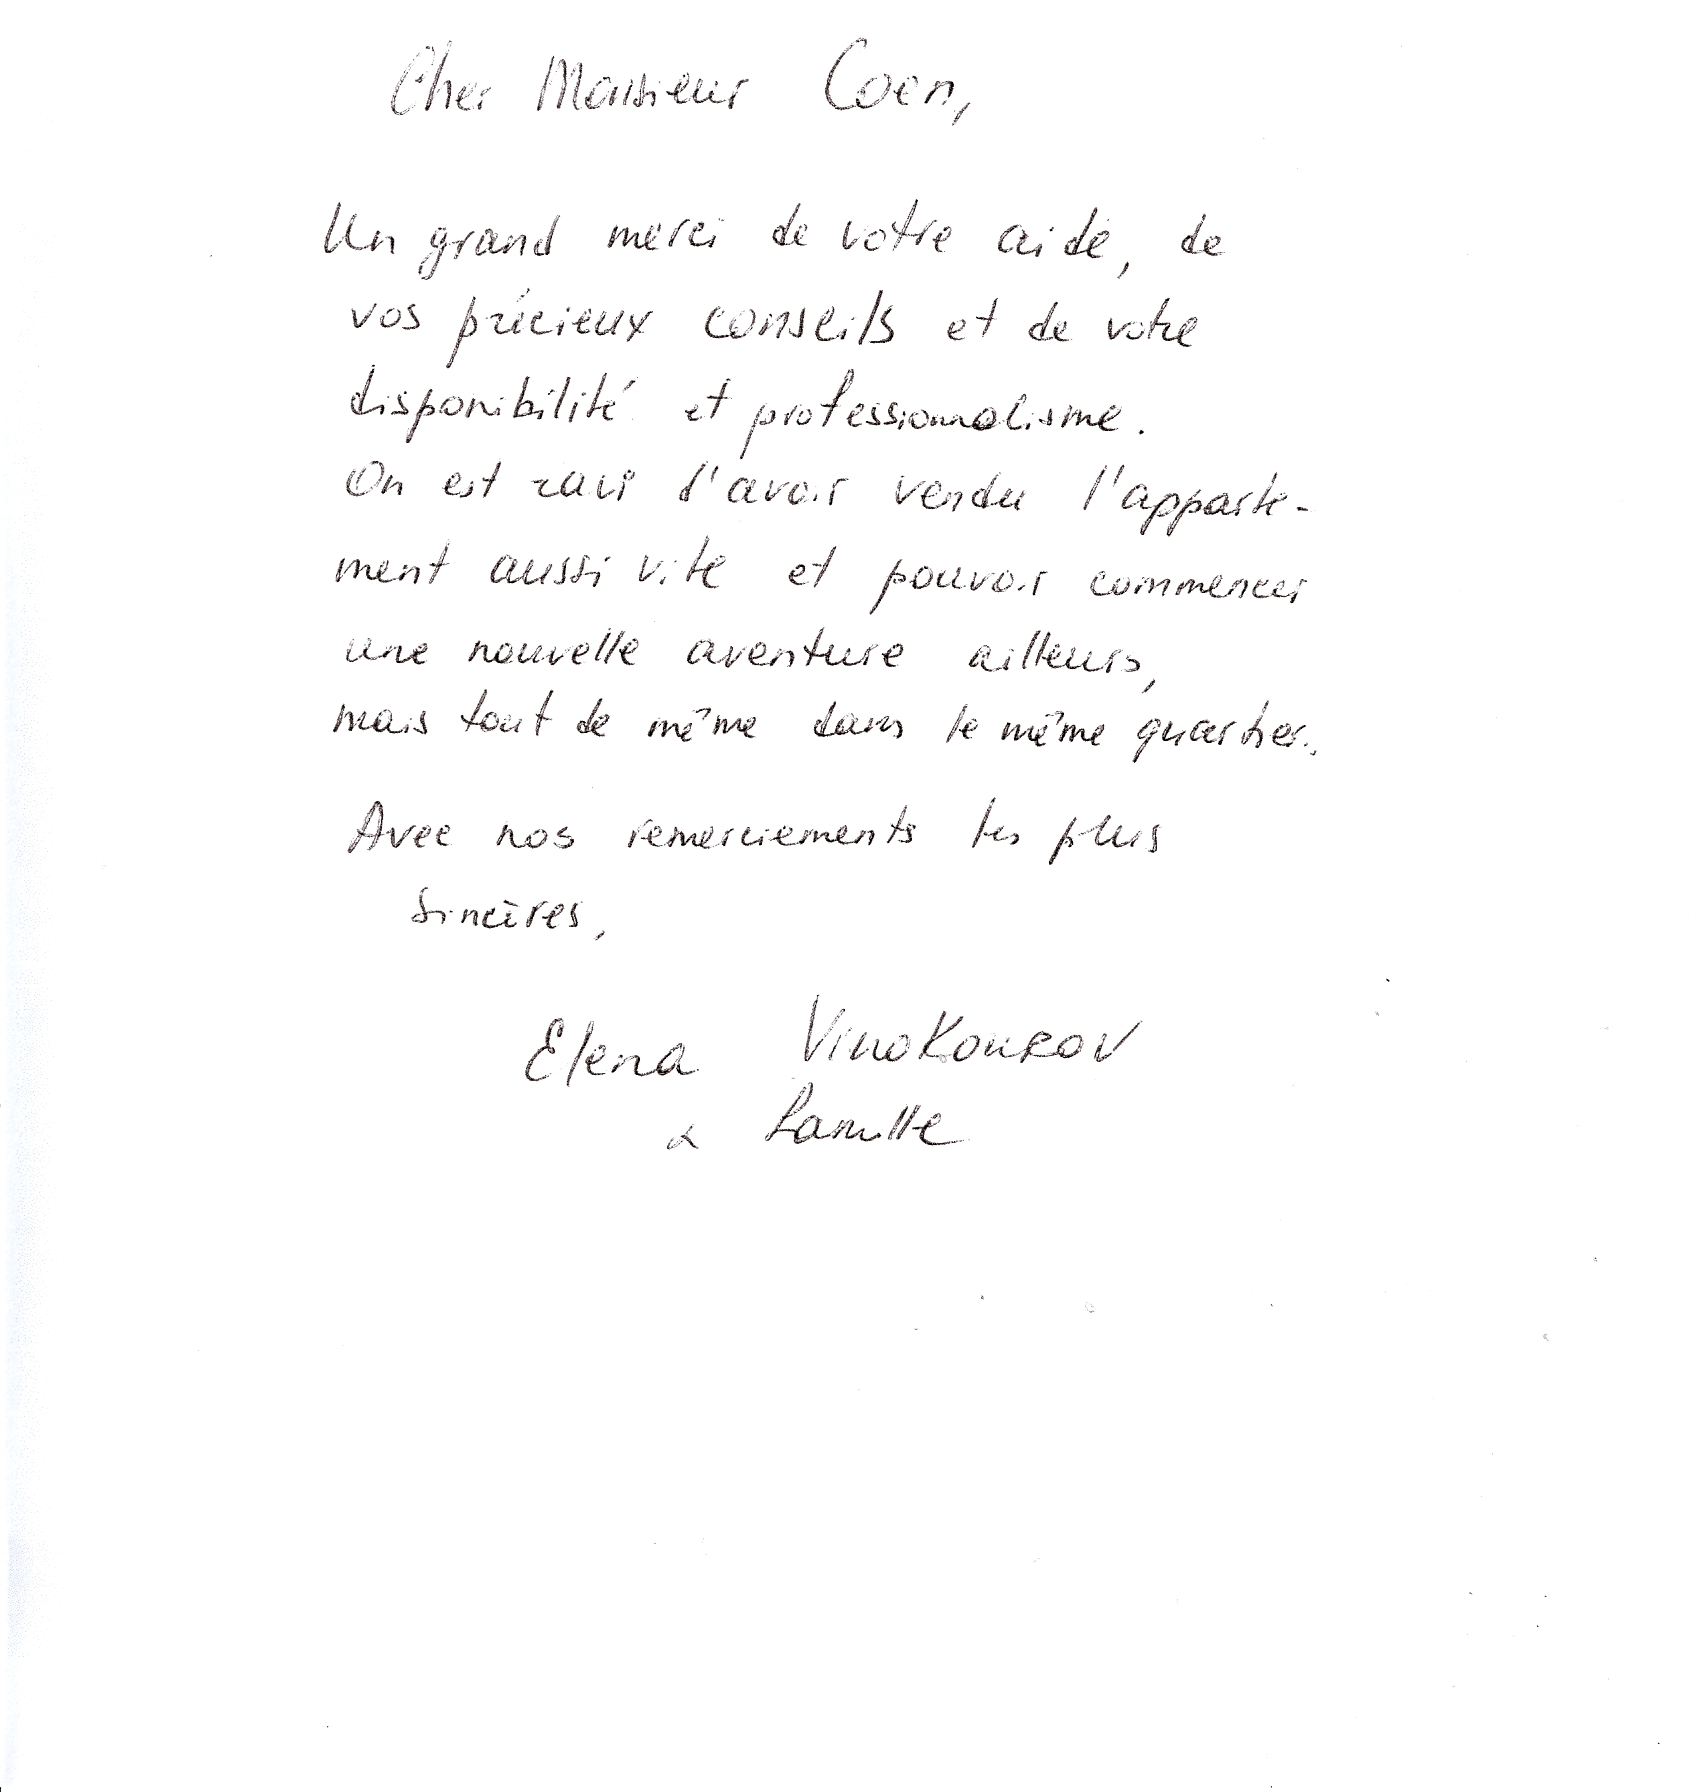 Cher Monsieur Coen,
Un grand merci de votre aide, de
vos précieux conseils et de votre
disponibilité et professionnalisme.
On est ravi d'avoir vendu l'apparte-
ment aussi vite et pouvoir commencer
une nouvelle aventure ailleurs,
mais tout de même dans le même quartier.
Avec nos remerciements les plus
sincères,
Elena Vinokourov
& famille